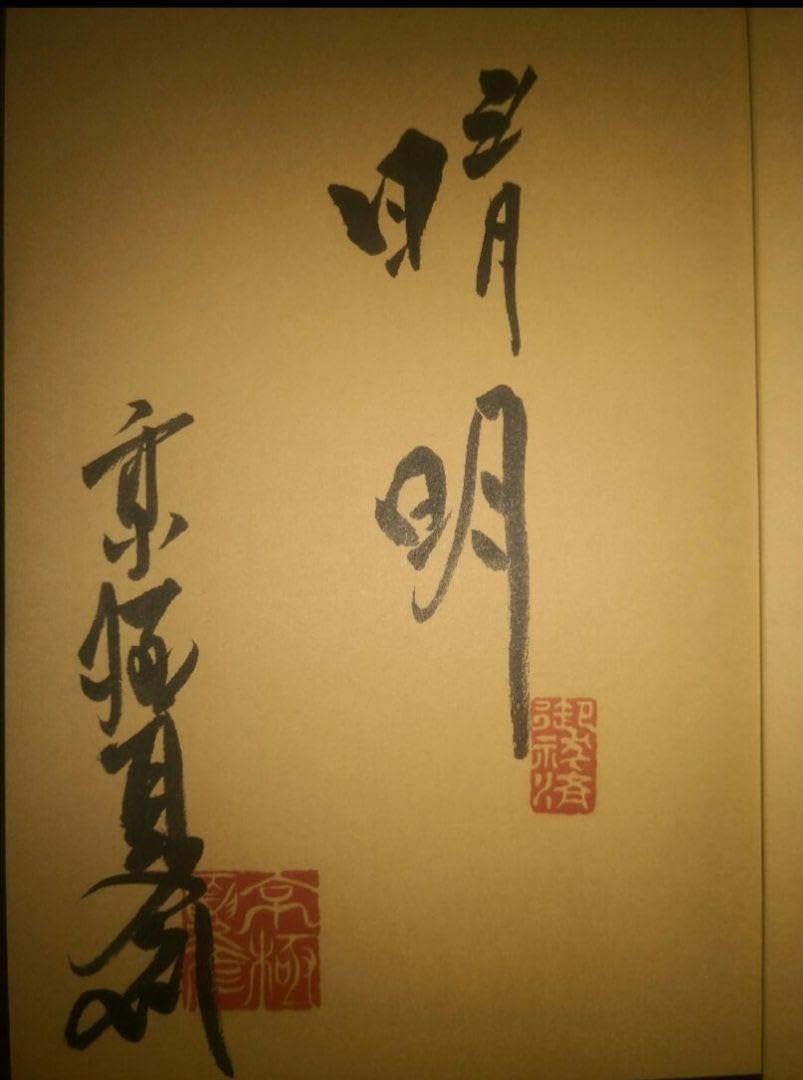 晴明
御祓済
京極夏彦
京極夏彦